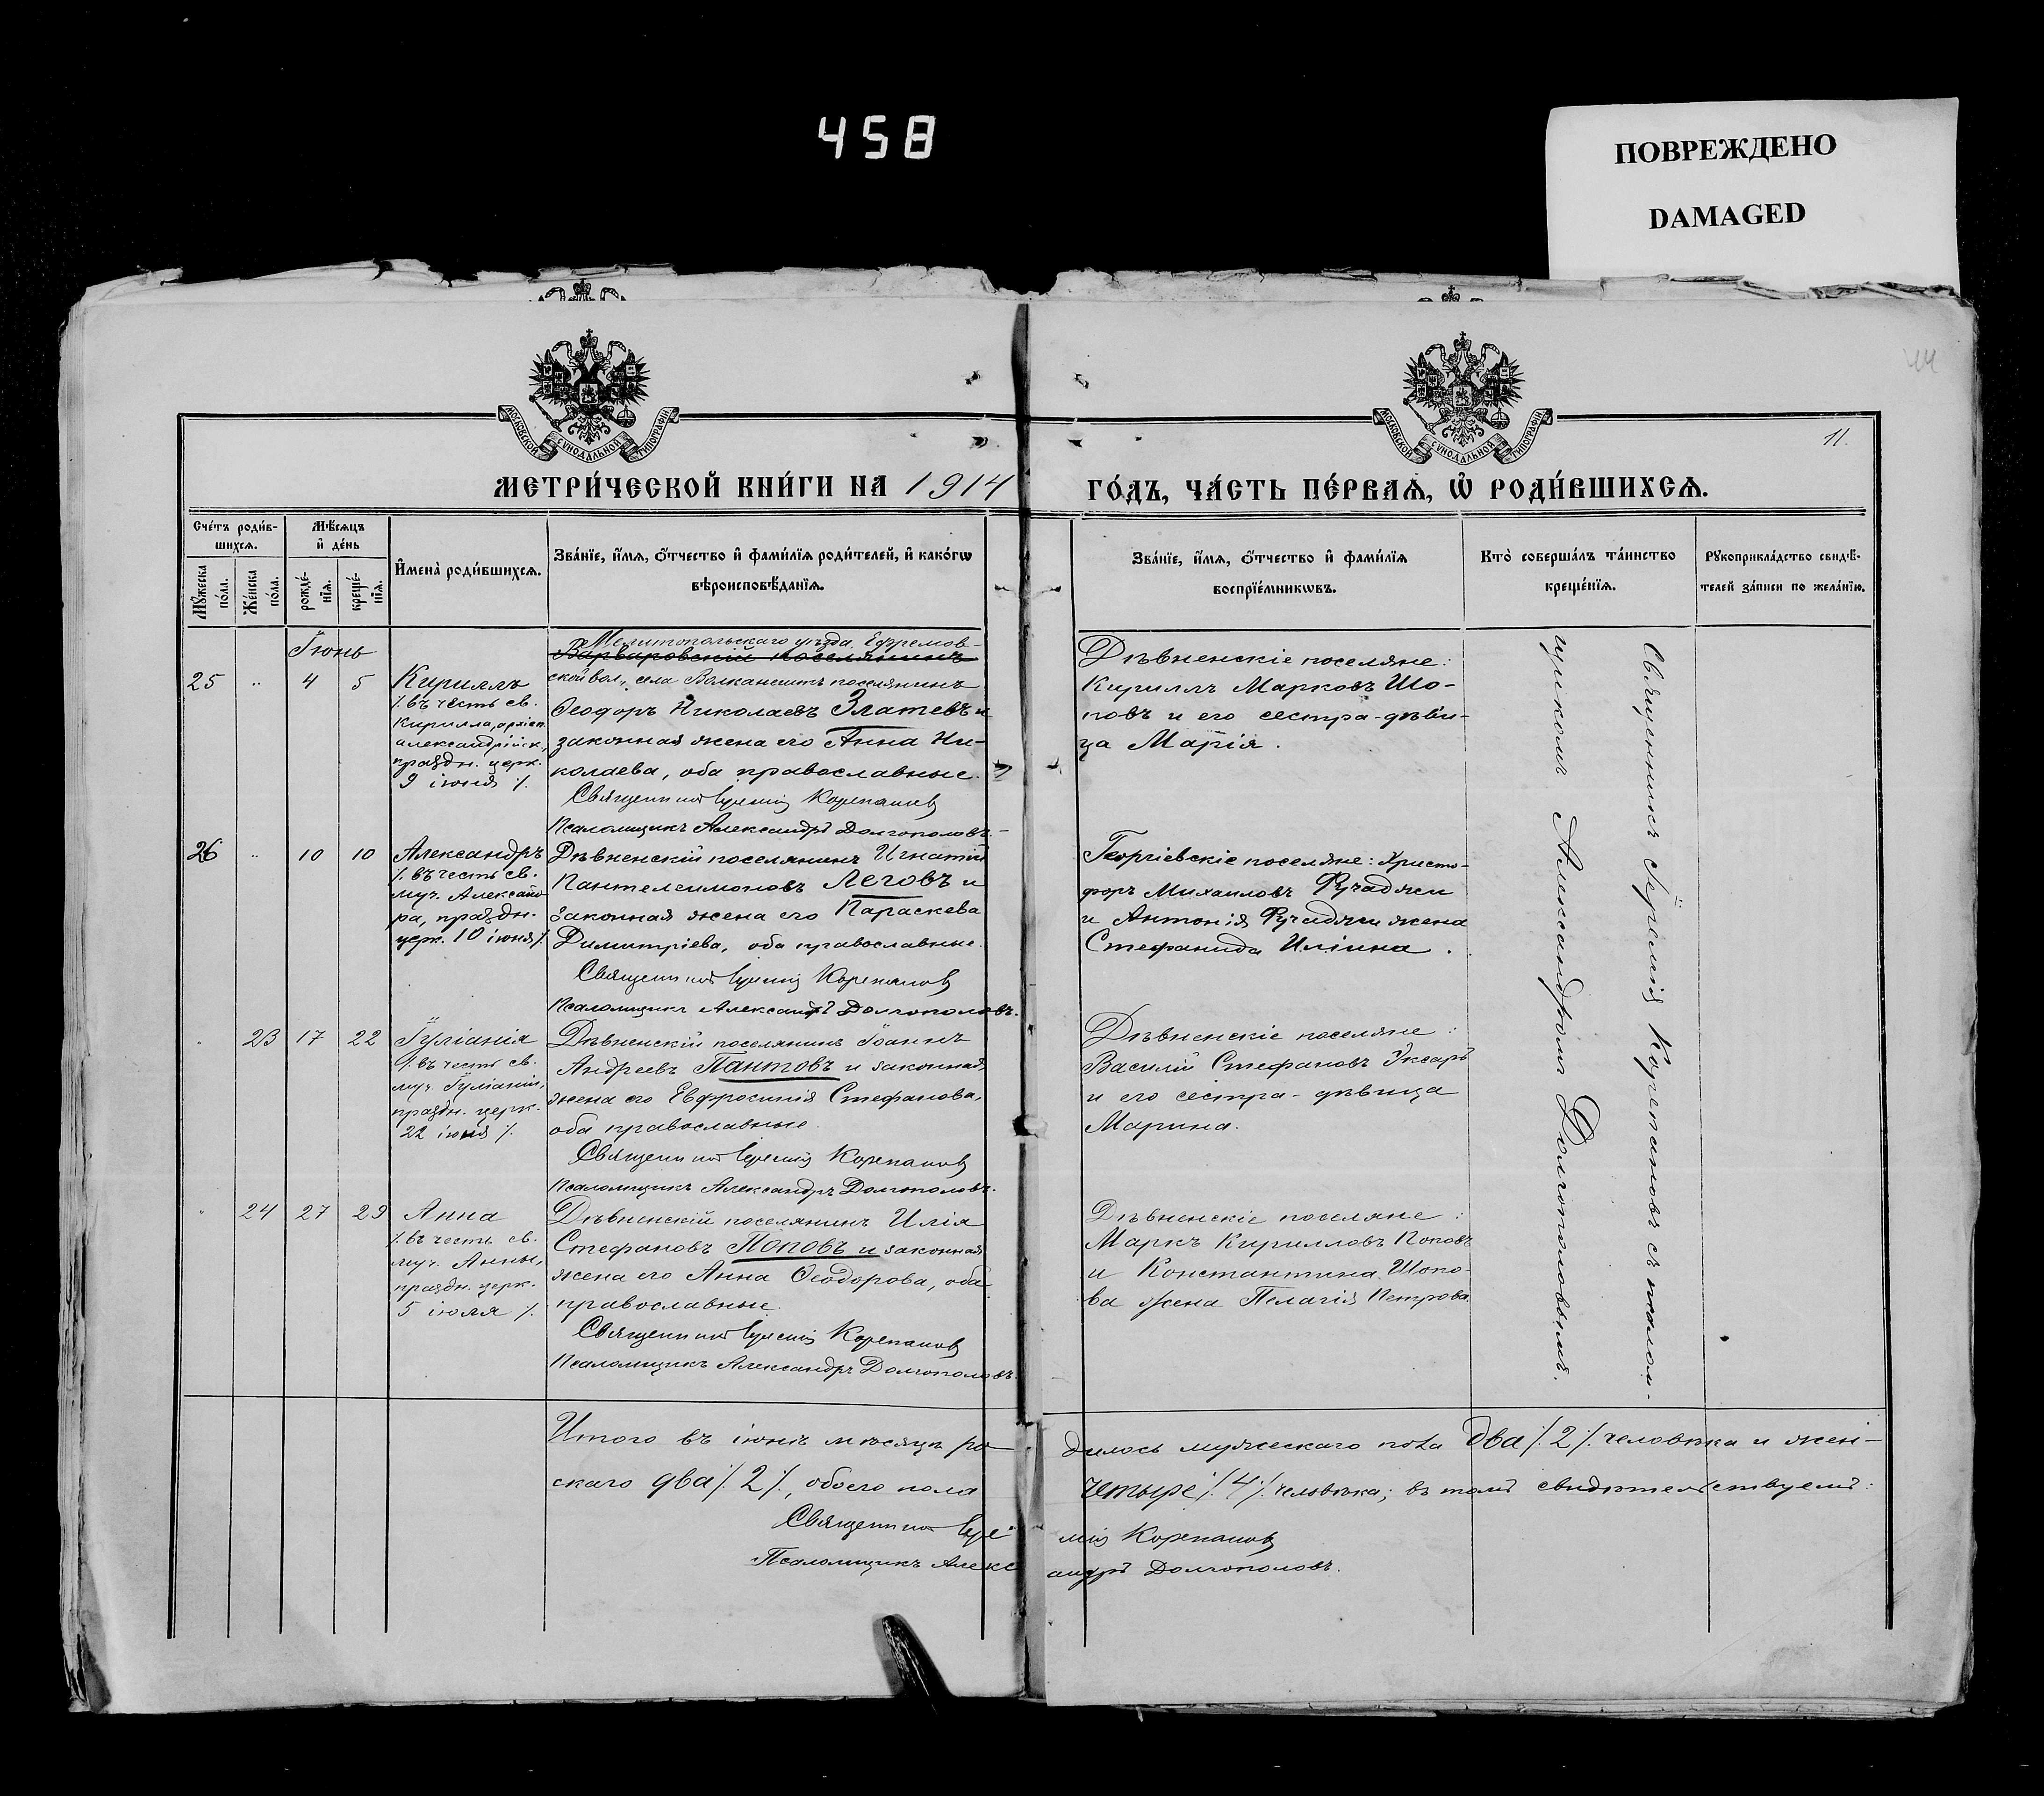 458
ПОВРЕЖДЕНО
DAMAGED
44
МОСКОВСКОЙ СѴНОДАЛЬНОЙ ТИПОГРАФІИ
МОСКОВСКОЙ СѴНОДАЛЬНОЙ ТИПОГРАФІИ
11.
МЕТРИ́ЧЕСКОЙ КНИ́ГИ НА 1914
ГО́ДЪ, ЧА́СТЬ ПЕ́РВАѦ, Ѡ҆ РОДИ́ВШИХСѦ.
Сче́тъ роди́в-
шихсѧ.
Мѣ́сѧцъ
и҆ де́нь
Мꙋ́жеска
по́ла.
Же́нска
по́ла.
рожде́-
нїѧ.
креще́-
нїѧ.
И҆мена̀ роди́вшихсѧ.
Зва́нїе, и҆́мѧ, ѻ҆́тчество и҆ фами́лїѧ роди́телей, и҆ како́гѡ
вѣроисповѣ́данїѧ.
Зва́нїе, и҆́мѧ, ѻ҆́тчество и҆ фами́лїѧ
воспрїе́мникѡвъ.
Кто̀ соверша́лъ та́инство
креще́нїѧ.
Рꙋкоприкла́дство свидѣ́-
телей за́писи по жела́нїю.
Іюнь
25 " 4 5
Кириллъ
/. въ честь св.
Кирилла, архіеп.
александрійск.,
праздн. церк.
9 іюня /.
Мелитопольскаго уѣзда, Ефремов-
Варваровскій поселянинъ
ской вол., села Волканештъ поселянинъ
Ѳеодоръ Николаевъ Златевъ и
законная жена его Анна Ни-
колаева, оба православные.
Священникъ Іеремія Корепановъ
Псаломщикъ Александръ Долгополовъ.
Дѣвненскіе поселяне:
Кириллъ Марковъ Шо-
повъ и его сестра-дѣви-
ца Марія.
26 " 10 10
Александръ
/. въ честь св.
муч. Александ-
ра, праздн.
церк. 10 іюня /.
Дѣвненскій поселянинъ Игнатій
Пантелеимоновъ Леговъ и
законная жена его Параскева
Димитріева, оба православные.
Священникъ Іеремія Корепановъ
Псаломщикъ Александръ Долгополовъ.
Георгіевскіе поселяне: Христо-
форъ Михаиловъ Фучаджи
и Антонія Фучаджи жена
Стефанида Иліина.
" 23 17 22
Іуліанія
/. въ честь св.
муч. Іуліаніи,
праздн. церк.
22 іюня /.
Дѣвненскій поселянинъ Іоаннъ
Андреевъ Пантовъ и законная
жена его Евфросинія Стефанова,
оба православные.
Священникъ Іеремія Корепановъ
Псаломщикъ Александръ Долгополовъ.
Дѣвненскіе поселяне:
Василій Стефановъ Эксаръ
и его сестра-дѣвица
Марина.
" 24 27 29
Анна
/. въ честь св.
муч. Анны,
праздн. церк.
5 іюля /.
Дѣвненскій поселянинъ Илія
Стефановъ Поповъ и законная
жена его Анна Ѳеодорова, оба
православные.
Священникъ Іеремія Корепановъ
Псаломщикъ Александръ Долгополовъ.
Дѣвненскіе поселяне:
Маркъ Кирилловъ Поповъ
и Константина Шопо-
ва жена Пелагія Петрова.
Священникъ Іеремія Корепановъ съ псалом-
щикомъ Александромъ Долгополовымъ.
Итого въ іюнѣ мѣсяцѣ ро-
дилось мужескаго пола два /. 2 /. человѣка и жен-
скаго два /. 2 /., обоего пола
четыре /. 4 /. человѣка; въ томъ свидѣтельствуемъ:
Священникъ Іере-
мія Корепановъ
Псаломщикъ Алекс
андръ Долгополовъ.